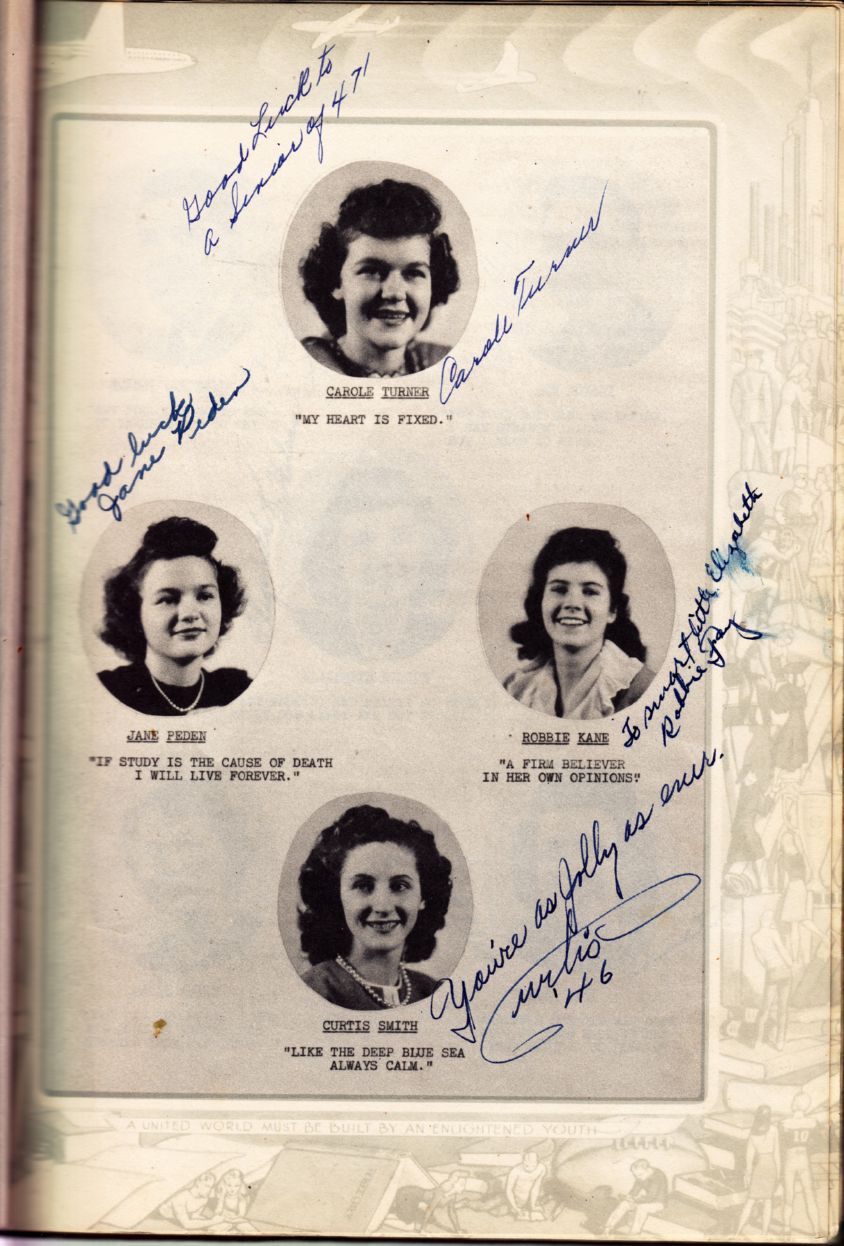 Good Luck to
a Senior of 47!
Carole Turner
CAROLE TURNER
"MY HEART IS FIXED."
Good luck
Jane Peden
JANE PEDEN
"IF STUDY IS THE CAUSE OF DEATH
I WILL LIVE FOREVER."
To smart little Elizabeth
Robbie Fay
ROBBIE KANE
"A FIRM BELIEVER
IN HER OWN OPINIONS"
You're as Jolly as ever.
Curtis
'46
CURTIS SMITH
"LIKE THE DEEP BLUE SEA
ALWAYS CALM."
A UNITED WORLD MUST BE BUILT BY AN ENLIGHTENED YOUTH